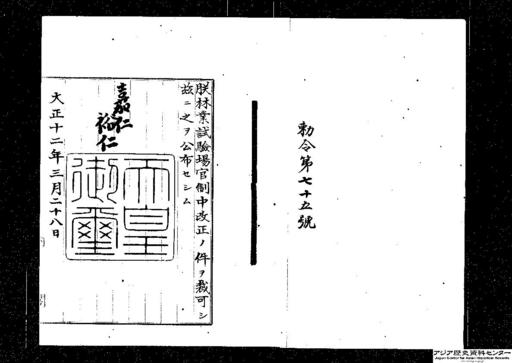 勅令第七十五號
朕林業試驗場官制中改正ノ件ヲ裁可シ
茲ニ之ヲ公布セシム
嘉仁
裕仁
天皇
御璽
大正十二年三月二十八日
アジア歴史資料センター
Japan Center for Asian Historical Records